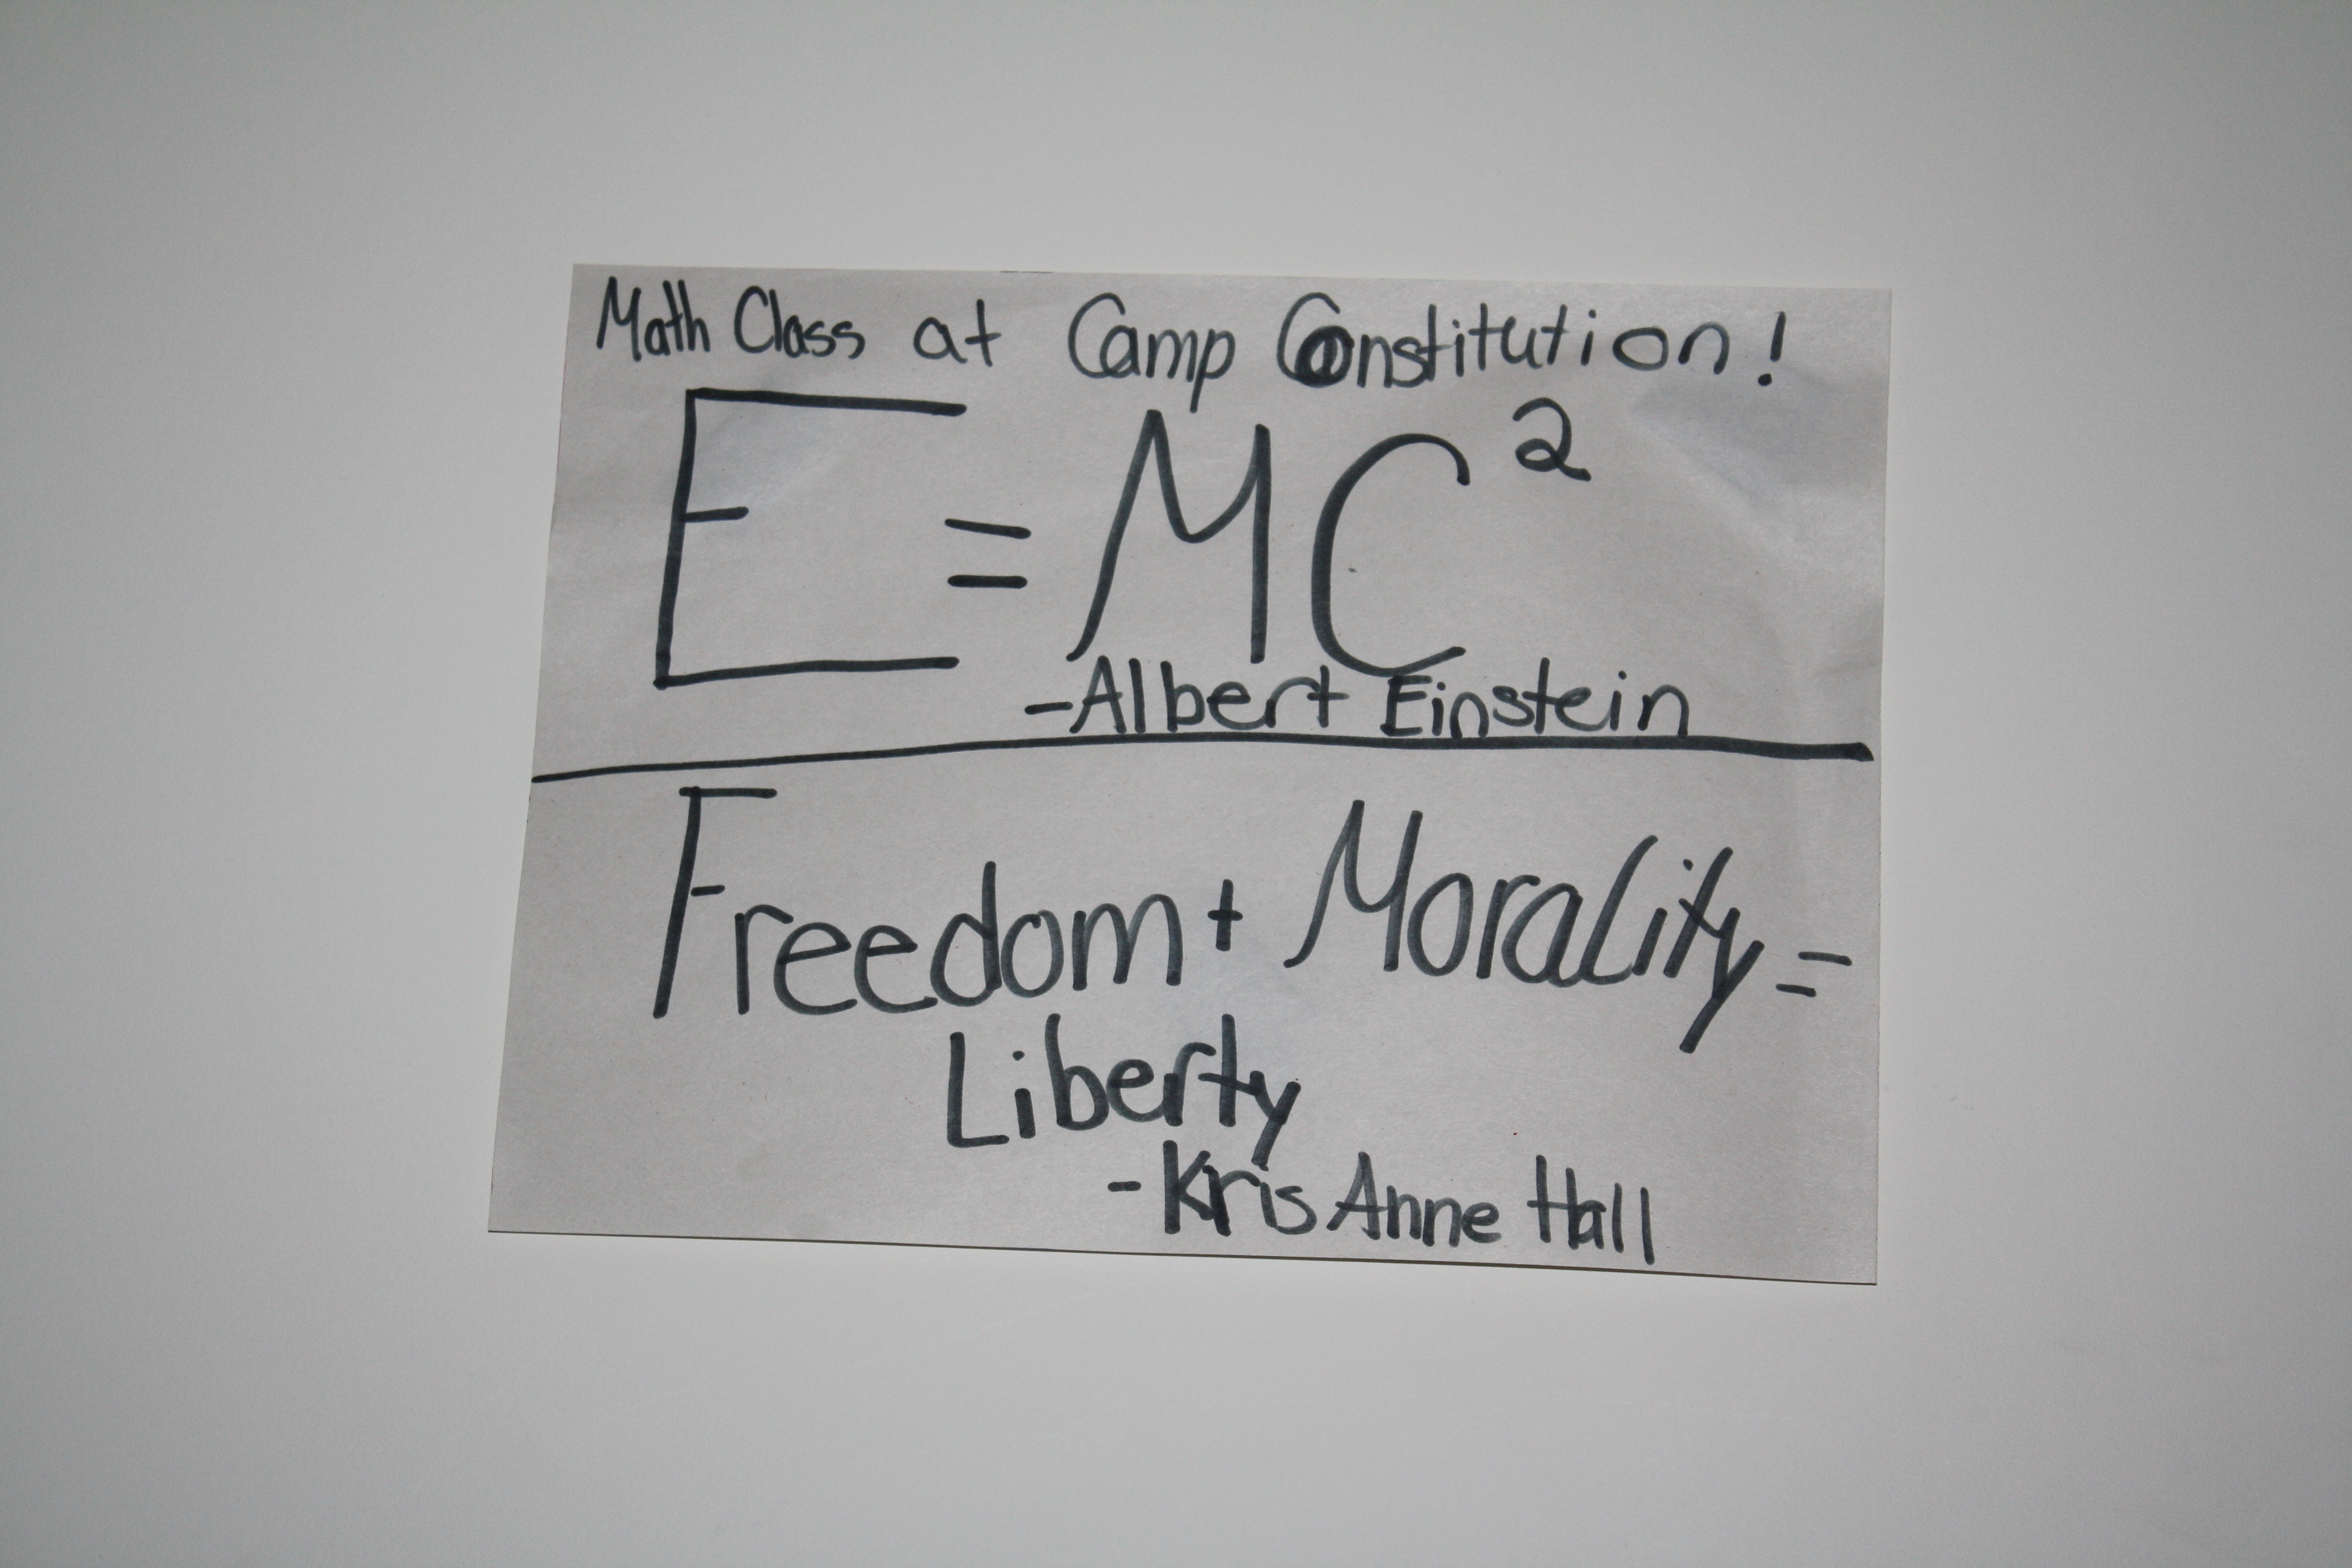 Math Class at Camp Constitution!
E = MC²
-Albert Einstein
Freedom + Morality =
Liberty
-Kris Anne Hall